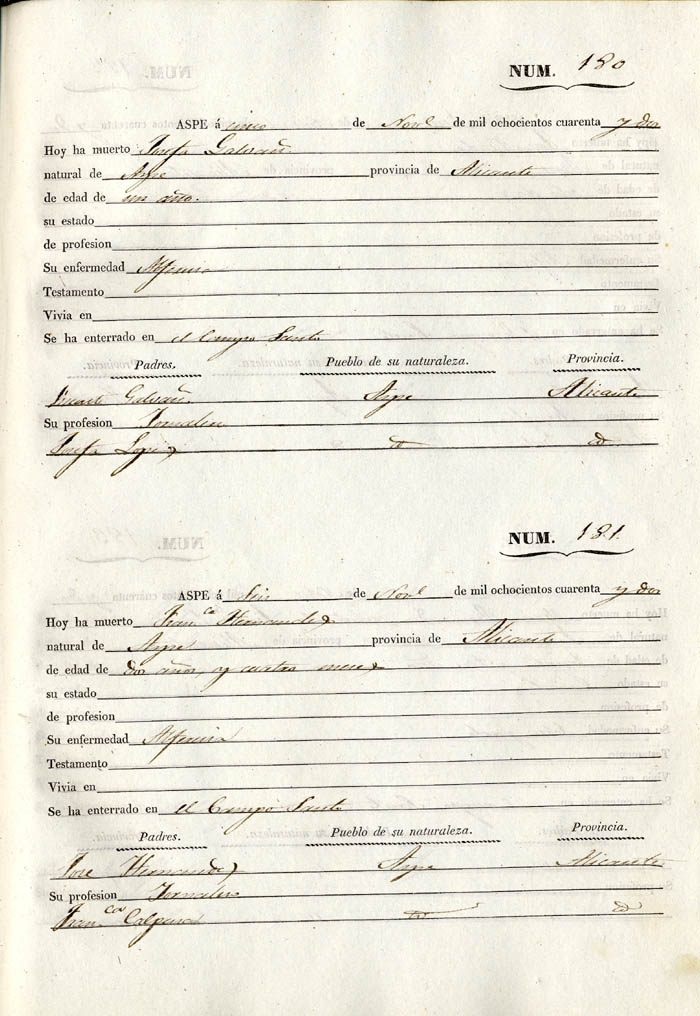 NUM. 180
ASPE á cinco de Nov.e de mil ochocientos cuarenta y dos
Hoy ha muerto Josefa Galvañ
natural de Aspe provincia de Alicante
de edad de un año.
su estado
de profesion
Su enfermedad Alferecia
Testamento
Vivia en
Se ha enterrado en el Campo Santo
Padres. Pueblo de su naturaleza. Provincia.
Vicente Galvañ Aspe Alicante
Su profesion Jornalero
Josefa Lopez id id
NUM. 181.
ASPE á Seis de Nov.e de mil ochocientos cuarenta y dos
Hoy ha muerto Fran.ca Hernandez
natural de Aspe provincia de Alicante
de edad de dos años, y cuatro meses
su estado
de profesion
Su enfermedad Alferecia
Testamento
Vivia en
Se ha enterrado en el Campo Santo
Padres. Pueblo de su naturaleza. Provincia.
Jose Hernandez Aspe Alicante
Su profesion Jornalero
Fran.ca Calpena id id